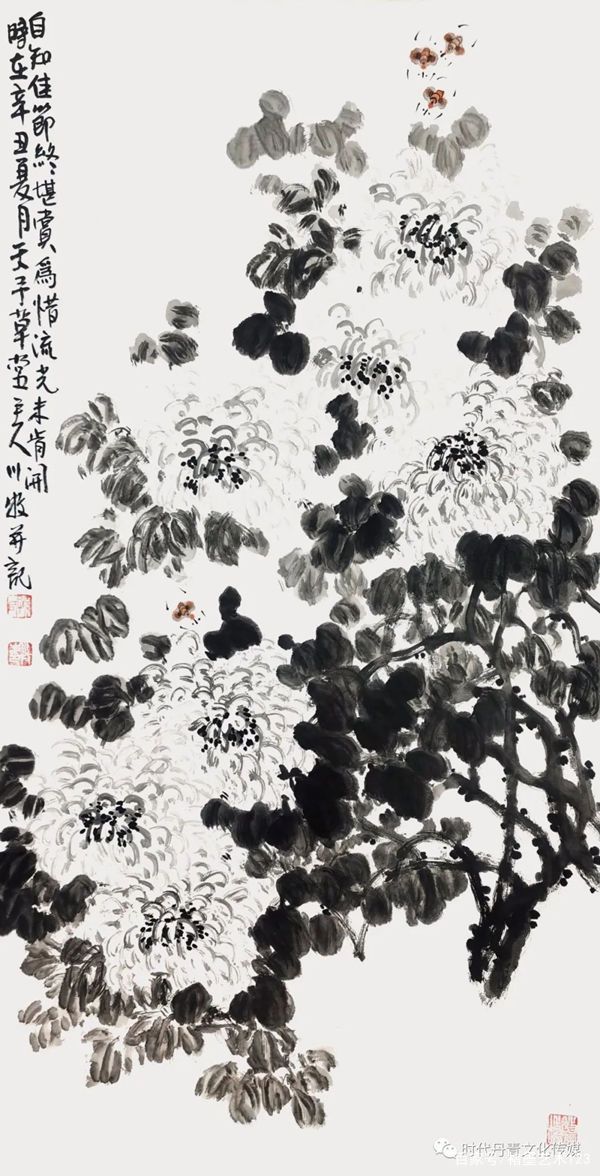 自知佳節終堪賞爲惜流光未肯開
時在辛丑夏月天子草堂主人川牧并記
时代丹青文化传媒